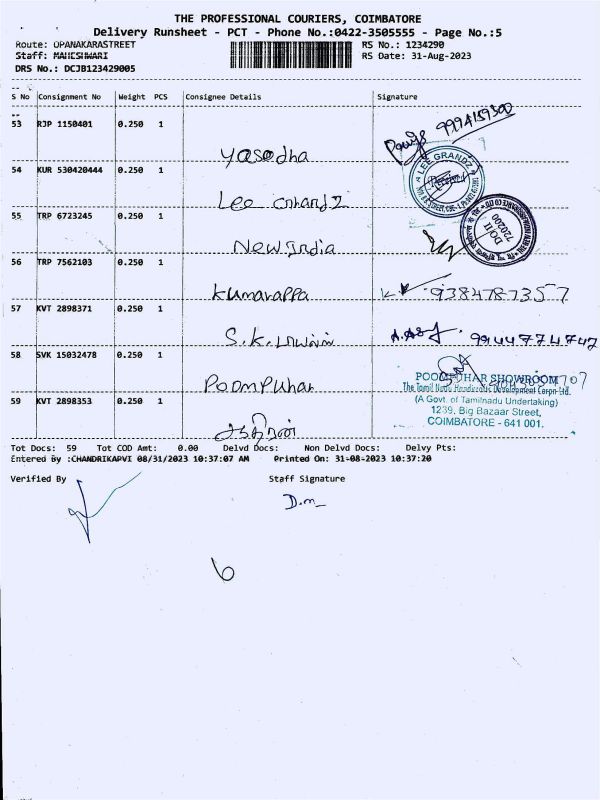 THE PROFESSIONAL COURIERS, COIMBATORE
Delivery Runsheet - PCT - Phone No.:0422-3505555 - Page No.:5
Route: OPANAKARASTREET RS No.: 1234290
Staff: MAHESHWARI RS Date: 31-Aug-2023
DRS No.: DCJB123429005
S No Consignment No Weight PCS Consignee Details Signature
53 RJP 1150401 0.250 1
Yasodha 9994159300
54 KUR 530420444 0.250 1
LEE GRANDZ
Lee
55 TRP 6723245 0.250 1
DO-II
720200
New India
56 TRP 7562103 0.250 1
Kumarappa 9384787357
57 KVT 2898371 0.250 1
S.K. 9944774742
58 SVK 15032478 0.250 1
Poompuhar
POOMPUHAR SHOWROOM
The Tamil Nadu Handicrafts Development Corpn Ltd.
(A Govt. of Tamilnadu Undertaking)
1239, Big Bazaar Street,
COIMBATORE - 641 001.
59 KVT 2898353 0.250 1
Tot Docs: 59 Tot COD Amt: 0.00 Delvd Docs: Non Delvd Docs: Delvy Pts:
Entered By :CHANDRIKAPVI 08/31/2023 10:37:07 AM Printed On: 31-08-2023 10:37:20
Verified By Staff Signature
D.m
6